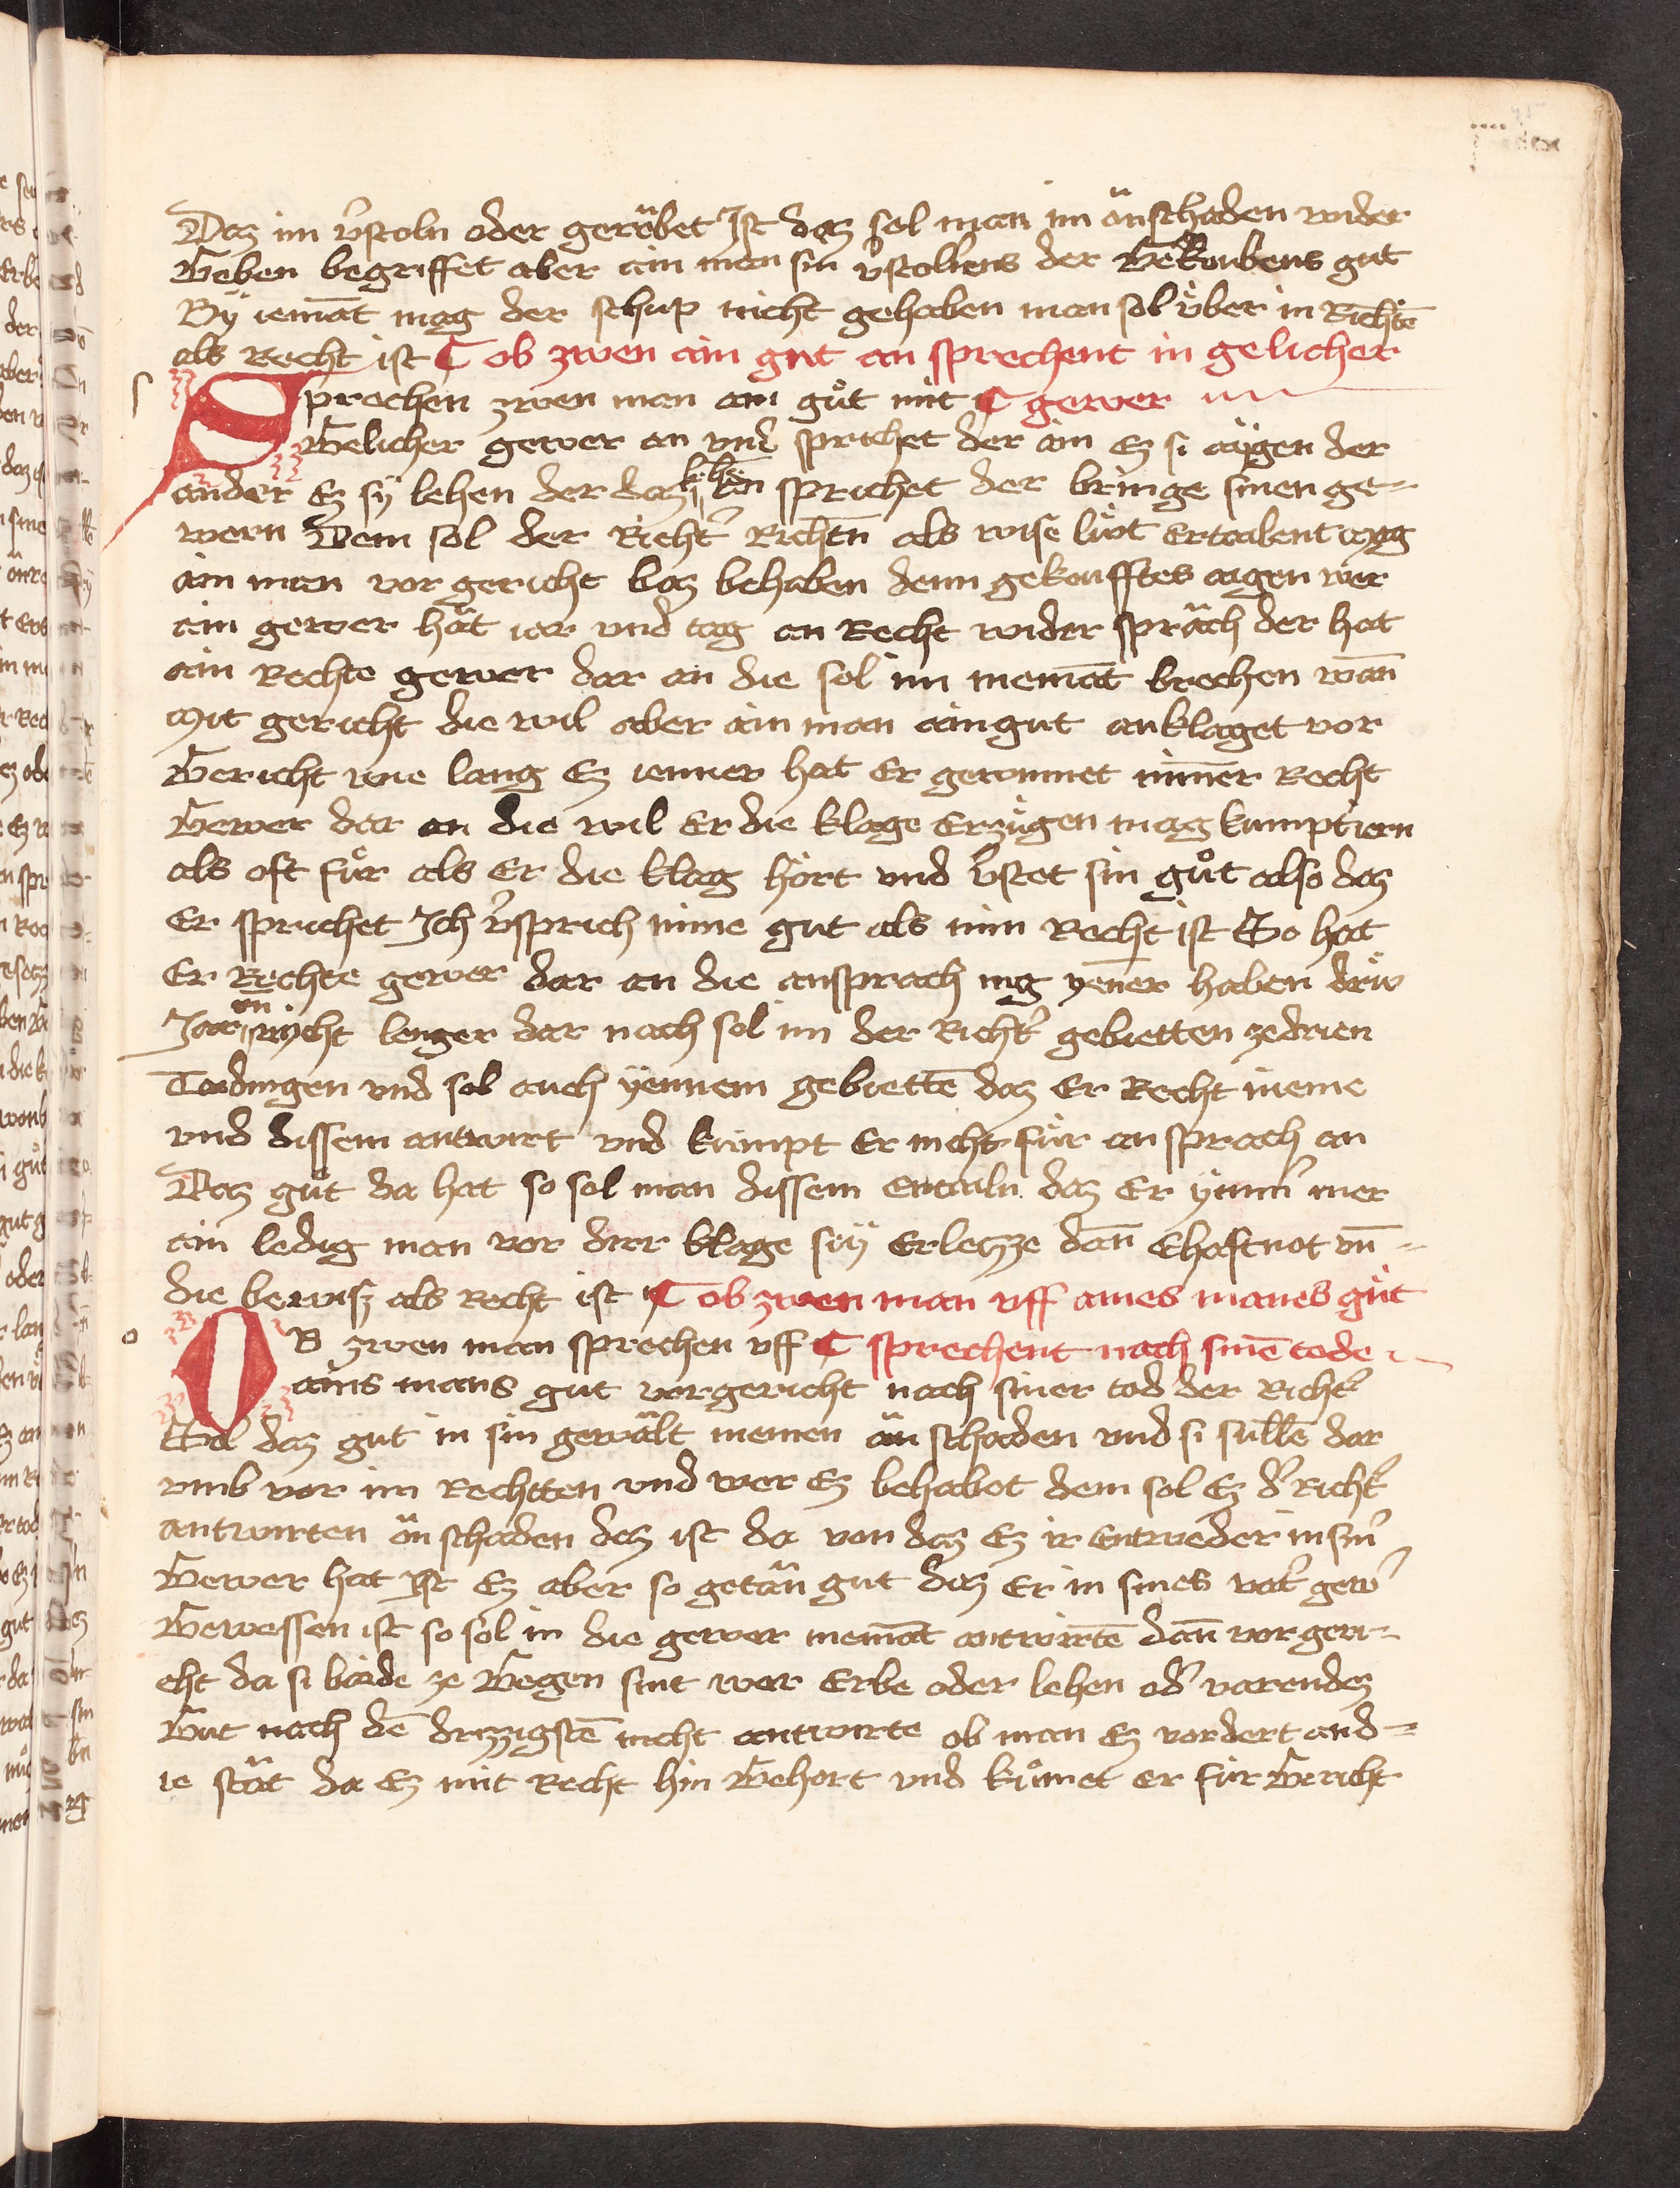 Daz im v̓stoln oder geraͮbet Jst daz sol man im aͧn schaden wider
Geben begriffet aber ain man sin v̓stollens der Gekoubens gut
Bÿ iemāt mag der schup nicht gehaben man sol uͤber in Richtē
als Recht ist ¶ ob zwen ain gut an sprechent in gelicher
Sprechen zwen man ain guͦt mit ¶ gewer
Gelicher gewer an vnd sprichet der ain Ez si aÿgen der
ander Ez sÿ lehen der daz lehē an sprichet der bringe sinen ge-
wern Dem sol der Richt̓ Richtn̄ als wise luͤt Ertailent Mag
ain man vor gericht baz behaben denn gekoufftes aigen wer
ain gewer haͧt iar vnd tag an Recht wider spraͧch der hat
ain Rechte gewer dar an die sol im niemāt brechen wān
Mit gericht die wil aber ain man ain gut anklaget vor
Gericht wie lang Ez ienner hat Er gewinnet nīmer Recht
Gewer dar an die wil Er die klage Erzuͤgen mag kumpt iern
als oft fuͤr als Er die klag hoͤrt vnd v̓stet sin guͦt also daz
Er sprichet Jch v̓sprich mine gut als min Recht ist So hat
Er Rechte gewer dar an die ansprach mg yener haben druͤ
Jar on nicht lenger dar nach sol im der Richt̓ gebietten ze drien
Taidingen vnd sol auch ÿennem gebiettē daz Er Recht nieme
vnd dissem antwurt vnd kumpt Er nicht fuͤr an sprach an
Daz guͦt da hat so sol man dissem Ertailn daz Er ÿmm̓ mer
ain ledig man vor dirr klage sÿ Erleczze dan̄ Ehaftnot vn̄-
die bewisz als Recht ist ¶ ob zwen man vff aines manes guͦt
OB zwen man sprechen vff ¶ sprechent nach sinē tode
ains mans gut vor gericht nach siner tod der Richt̓
Sol daz gut in sin gewaͧlt niemen aͧn schaden vnd si suͤllē dar
vmb vor im Rechtten vnd wer Ez behabet dem sol Ez d̓ Richt̓
antwurten aͧn schaden daz ist da von daz Ez ir Entweder in sin̓
Gewer hat Jst Ez aber so getaͧn gut daz Er in sines vat̓ gew̓
Gewessen ist so sol in die gewer niemāt antwurtē dan̄ vor geri-
cht da si baide ze Gegen sint wer Erbe oder lehen od̓ varendez
Gut nach dē drizzigstē nicht antwurte ob man Ez vordert and-
ie staͧt da Ez mit Recht hin Gehort vnd kuͤmet er fuͤr Gericht